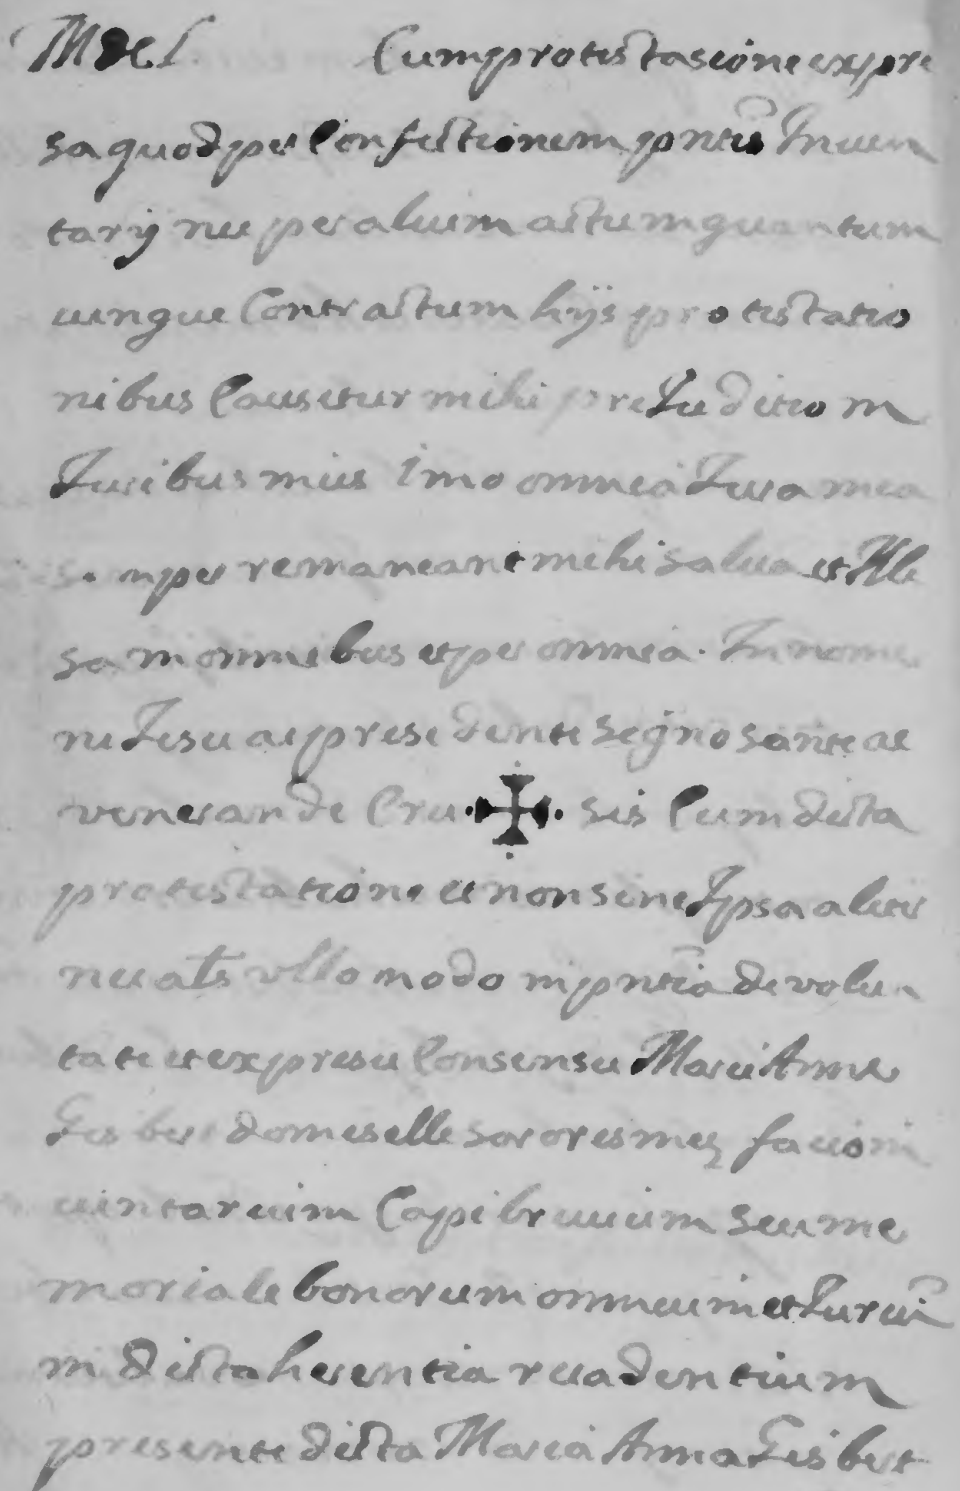 Mdcl. Cum protestacione expre
sa quod per Confectionem pntis Inuen
tarij nec per aluim actum quantum
uingue Contractum hijs protestatio
nibus Causetur mihi preIuditiom
Iuribus meis Imo omnia Iura mea
semper remaneant mihi salua et Ille
sa in omnibus et per omnia. In nomi
ne Iesu ac presedente segno sante ac
venerande Cru sis Cum dicta
protestatione et non sine Ipsa aliter
nec als vllo modo in pntia de volun
tate et expresu Consensu Maria Anne
Gisbert domeselle sorores mee facio in
uintaruim Capibreuium seu me
moriale bonorum omnium et Iurium
in dicta herentia recadentium
presente dicta Maria Anna Gisbert